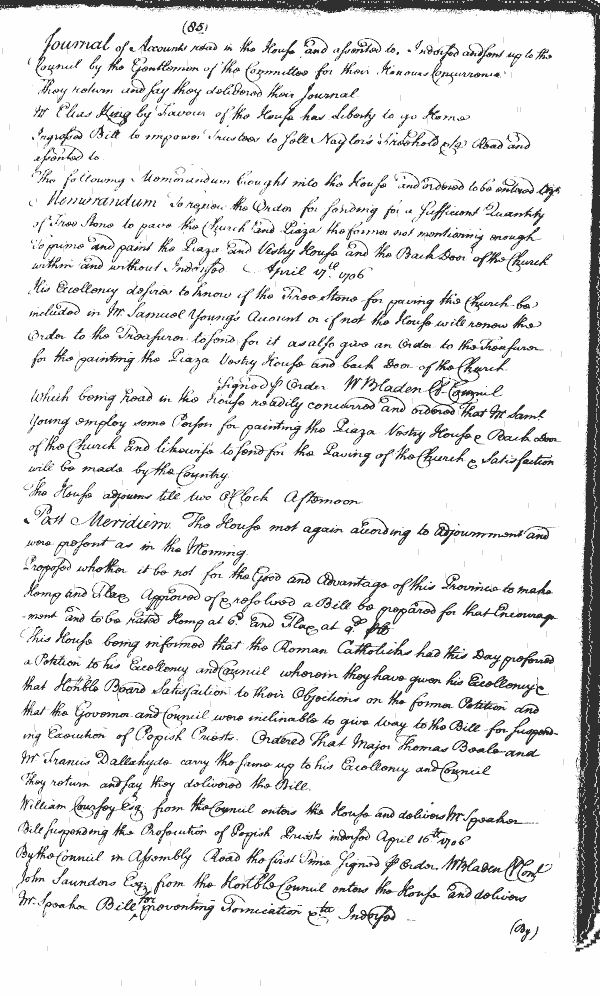 (85)
Journal of Accounts read in the House and assented to, Indorsed and sent up to the
Council by the Gentlemen of the Committee for their Honours Concurrence
They return and say they delivered their Journal
Mr Elias King by Favour of the House has Liberty to go Home
Ingrossed Bill to empower Trustees to sell Naylor's Freehold &c Read and
assented to
The following Memorandum brought into the House and ordered to be entered
Memorandum To renew the Order for sending for a Sufficient Quantity
of Free Stone to pave the Church and Piaza the former not mentioning enough
To prime and paint the Piaza and Vestry House and the Back Door of the Church
within and without Indorsed April 17th 1706
His Excellency desires to know if the Free stone for paving the Church be
included in Mr Samuel Young's Account or if not the House will renew the
Order to the Treasurer to send for it as also give an Order to the Treasurer
for the painting the Piaza Vestry House and back Door of the Church
Signed P Order W Bladen Cl Council
Which being Read in the House readily concurred and ordered that Mr Saml
Young employ some Person for painting the Piaza Vestry House & Back Door
of the Church and likewise to send for the Paving of the Church & Satisfaction
will be made by the Country.
The House adjourns till two O'Clock Afternoon
Post Meridiem. The House met again according to Adjournment and
were present as in the Morning.
Proposed whether it be not for the Good and Advantage of this Province to make
Hemp and Flax Approved of & resolved a Bill be prepared for that Encourage
-ment and to be rated Hemp at 6d and Flax at 9d P lb
This House being informed that the Roman Catholicks had this Day preferred
a Petition to his Excellency and Council wherein they have given his Excellency &
that Honble Board Satisfaction to their Objections on the former Petition and
that the Governor and Council were inclinable to give Way to the Bill for suspend-
ing Execution of Popish Priests. Ordered That Major Thomas Beale and
Mr Francis Dallahyde carry the same up to his Excellency and Council
They return and say they delivered the Bill.
William Coursey Esq from the Council enters the House and delivers Mr Speaker
Bill suspending the Prosecution of Popish Priests indorsed April 16th 1706
By the Council in Assembly Read the first Time Signed P Order W Bladen Cl Conl
John Saunders Esqr from the Honble Council enters the House and delivers
Mr Speaker Bill for preventing Fornication &ca Indorsed
(By)